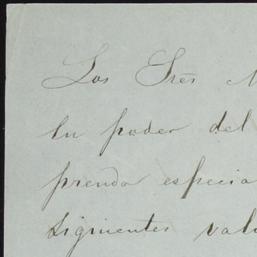 Los Sres
En poder del
prenda especia
siguientes valo